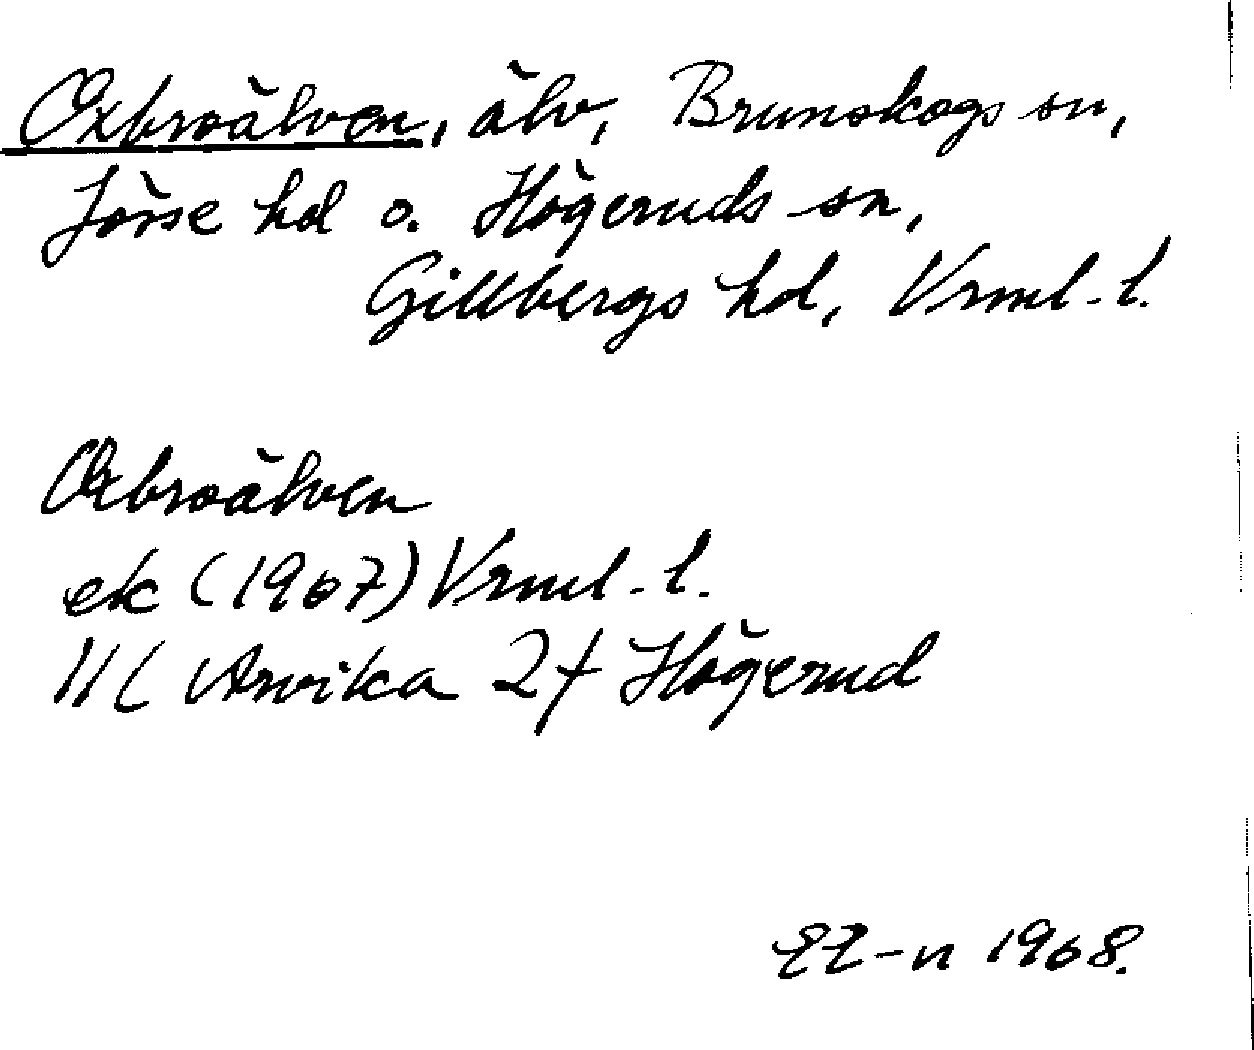 Oxbroälven, älv, Brunskogs sn,
Jösse hd o. Högeruds sn,
Gillbergs hd, Vrml. l.
Oxbroälven
ek (1967) Vrml. l.
11C Arvika 2f Högerud
1968.